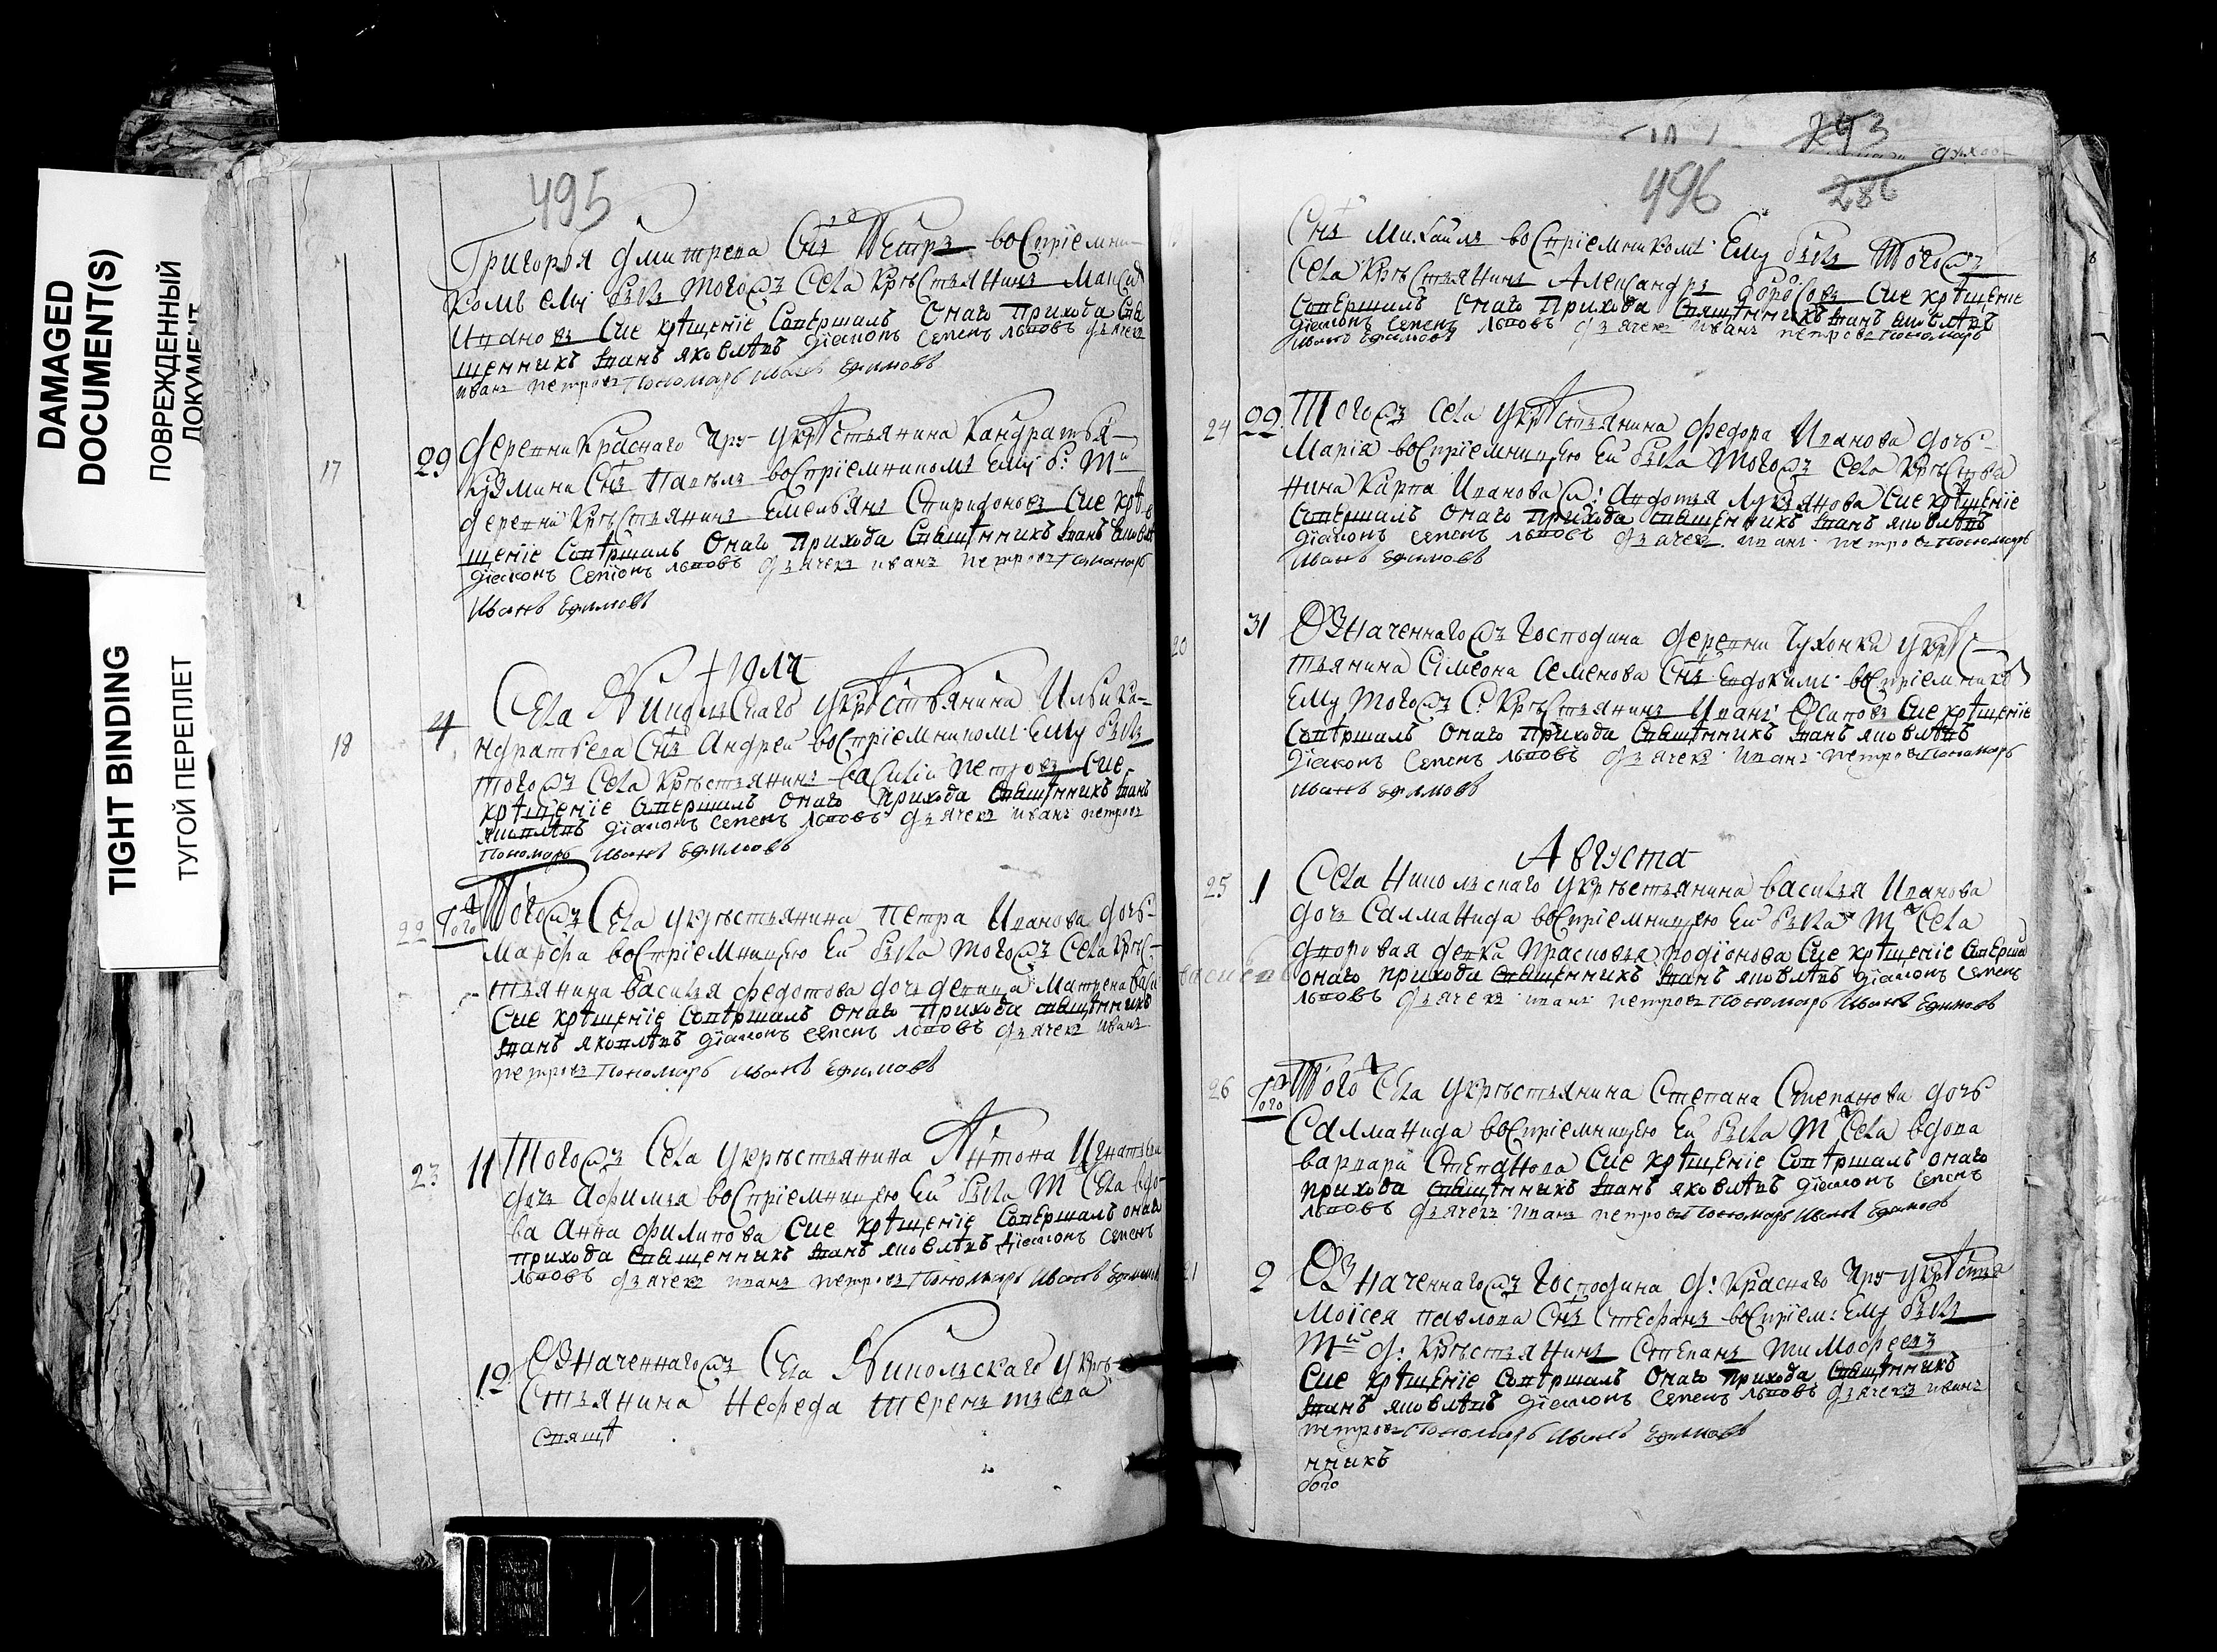 DAMAGED
DOCUMENT(S)
ПОВРЕЖДЕННЫЙ
ДОКУМЕНТ
TIGHT BINDING
ТУГОЙ ПЕРЕПЛЕТ
495
Григорья дмитрева Снъ Петръ восприемни
комъ ему былъ тогожъ села крѣстьянинъ
Ивановъ Сие крѣщенїе совершалъ онаго прихода свя
щенникъ Иванъ яковлѣвъ дїаконъ семенъ львовъ дьячекъ
иванъ петровъ Пономарь Иванъ Ефимовъ
17
29 деревни Краснаго укрѣстьянина Кандратья
Кузмина Снъ Павелъ восприемникомъ ему б: Той
деревни крѣстьянинъ Емельянъ Спиридоновъ Сие крѣ
щенїе совѣршалъ онаго прихода свящѣнникъ Иванъ яковлѣвъ
дїаконъ Семионъ львовъ дьячекъ иванъ петровъ Пономарь
Иванъ Ефимовъ
Июля
18
4 Села Никольскаго укрѣстьянина Ильи Ка
ндратьева Снъ Андрей восприемникомъ ему былъ
тогожъ села крѣстьянинъ василий петровъ Сие
крѣщенїе совершалъ онаго прихода свящѣнникъ Иванъ
яковлѣвъ дїаконъ семенъ львовъ дьячекъ иванъ петровъ
Пономарь Иванъ Ефимовъ
22 того Тогожъ Села укрѣстьянина петра Иванова дочь
Марфа восприемницею ей была тогожъ села крѣс
тьянина василья федотова дочь девица Матрена
Сие крѣщенїе совѣршалъ онаго прихода свящѣнникъ
Иванъ яковлѣвъ дїаконъ семенъ львовъ дьячекъ иванъ
петровъ Пономарь Иванъ Ефимовъ
23 11 Тогожъ Села укрѣстьянина Антона Игнатьева
дочь Афимья восприемницею ей была Т Села вдо
ва Анна филипова Сие крѣщенїе совершалъ онаго
прихода священникъ Иванъ яковлѣвъ дїаконъ семенъ
львовъ дьячекъ иванъ петровъ Пономарь Иванъ Ефимовъ
12 Означеннагожъ Села Никольскаго укрѣ
стьянина Нефеда Терентьева
свящѣ
293
496 286
Снъ Михайлъ восприемникомъ ему былъ Тогожъ
села крѣстьянинъ Александръ Сие крѣщенїе
совершилъ онаго прихода свящѣнникъ Иванъ яковлѣвъ
дїаконъ семенъ львовъ дьячекъ иванъ петровъ Пономарь
Иванъ Ефимовъ
24 22 Тогожъ села укрѣстьянина федора Иванова дочь
Мария восприемницею ей была тогожъ села крѣстья
нина Карпа Иванова ж: Авдотья Лукьянова Сие крѣщенїе
совершалъ онаго прихода священникъ Иванъ яковлѣвъ
дїаконъ семенъ львовъ дьячекъ иванъ петровъ Пономарь
Иванъ Ефимовъ
20
31 Означеннагожъ господина деревни Чухонки укрѣс
тьянина Симеона Семенова Снъ Евдокимъ восприемникъ
ему тогожъ С: крѣстьянинъ Иванъ Осиповъ Сие крѣщенїе
совѣршалъ онаго прихода свящѣнникъ Иванъ яковлѣвъ
дїаконъ семенъ львовъ дьячекъ иванъ петровъ Пономарь
Иванъ Ефимовъ
Августа
25 1 Села Никольскаго укрѣстьянина василья Иванова
дочь Салманида восприемницею ей была Т Села
дворовая девка Прасковья родионова Сие крѣщенїе совѣрша
онаго прихода священникъ Иванъ яковлѣвъ дїаконъ семенъ
львовъ дьячекъ иванъ петровъ Пономарь Иванъ Ефимовъ
26 того Того Села укрѣстьянина Степана Степанова дочь
Салманида восприемницею ей была Т Села вдова
варвара Степанова Сие крѣщенїе совѣршалъ онаго
прихода свящѣнникъ Иванъ яковлѣвъ дїаконъ семенъ
львовъ дьячекъ иванъ петровъ Пономарь Иванъ Ефимовъ
21
2 Означеннагожъ господина д: Краснаго укрѣстья
Моисея павлова Снъ Стефанъ восприем: ему былъ
Той д: крѣстьянинъ Степанъ тимофеевъ
Сие крѣщенїе совѣршалъ онаго прихода свящѣнникъ
Иванъ яковлѣвъ дїаконъ семенъ львовъ дьячекъ иванъ
петровъ Пономарь Иванъ Ефимовъ
нникъ